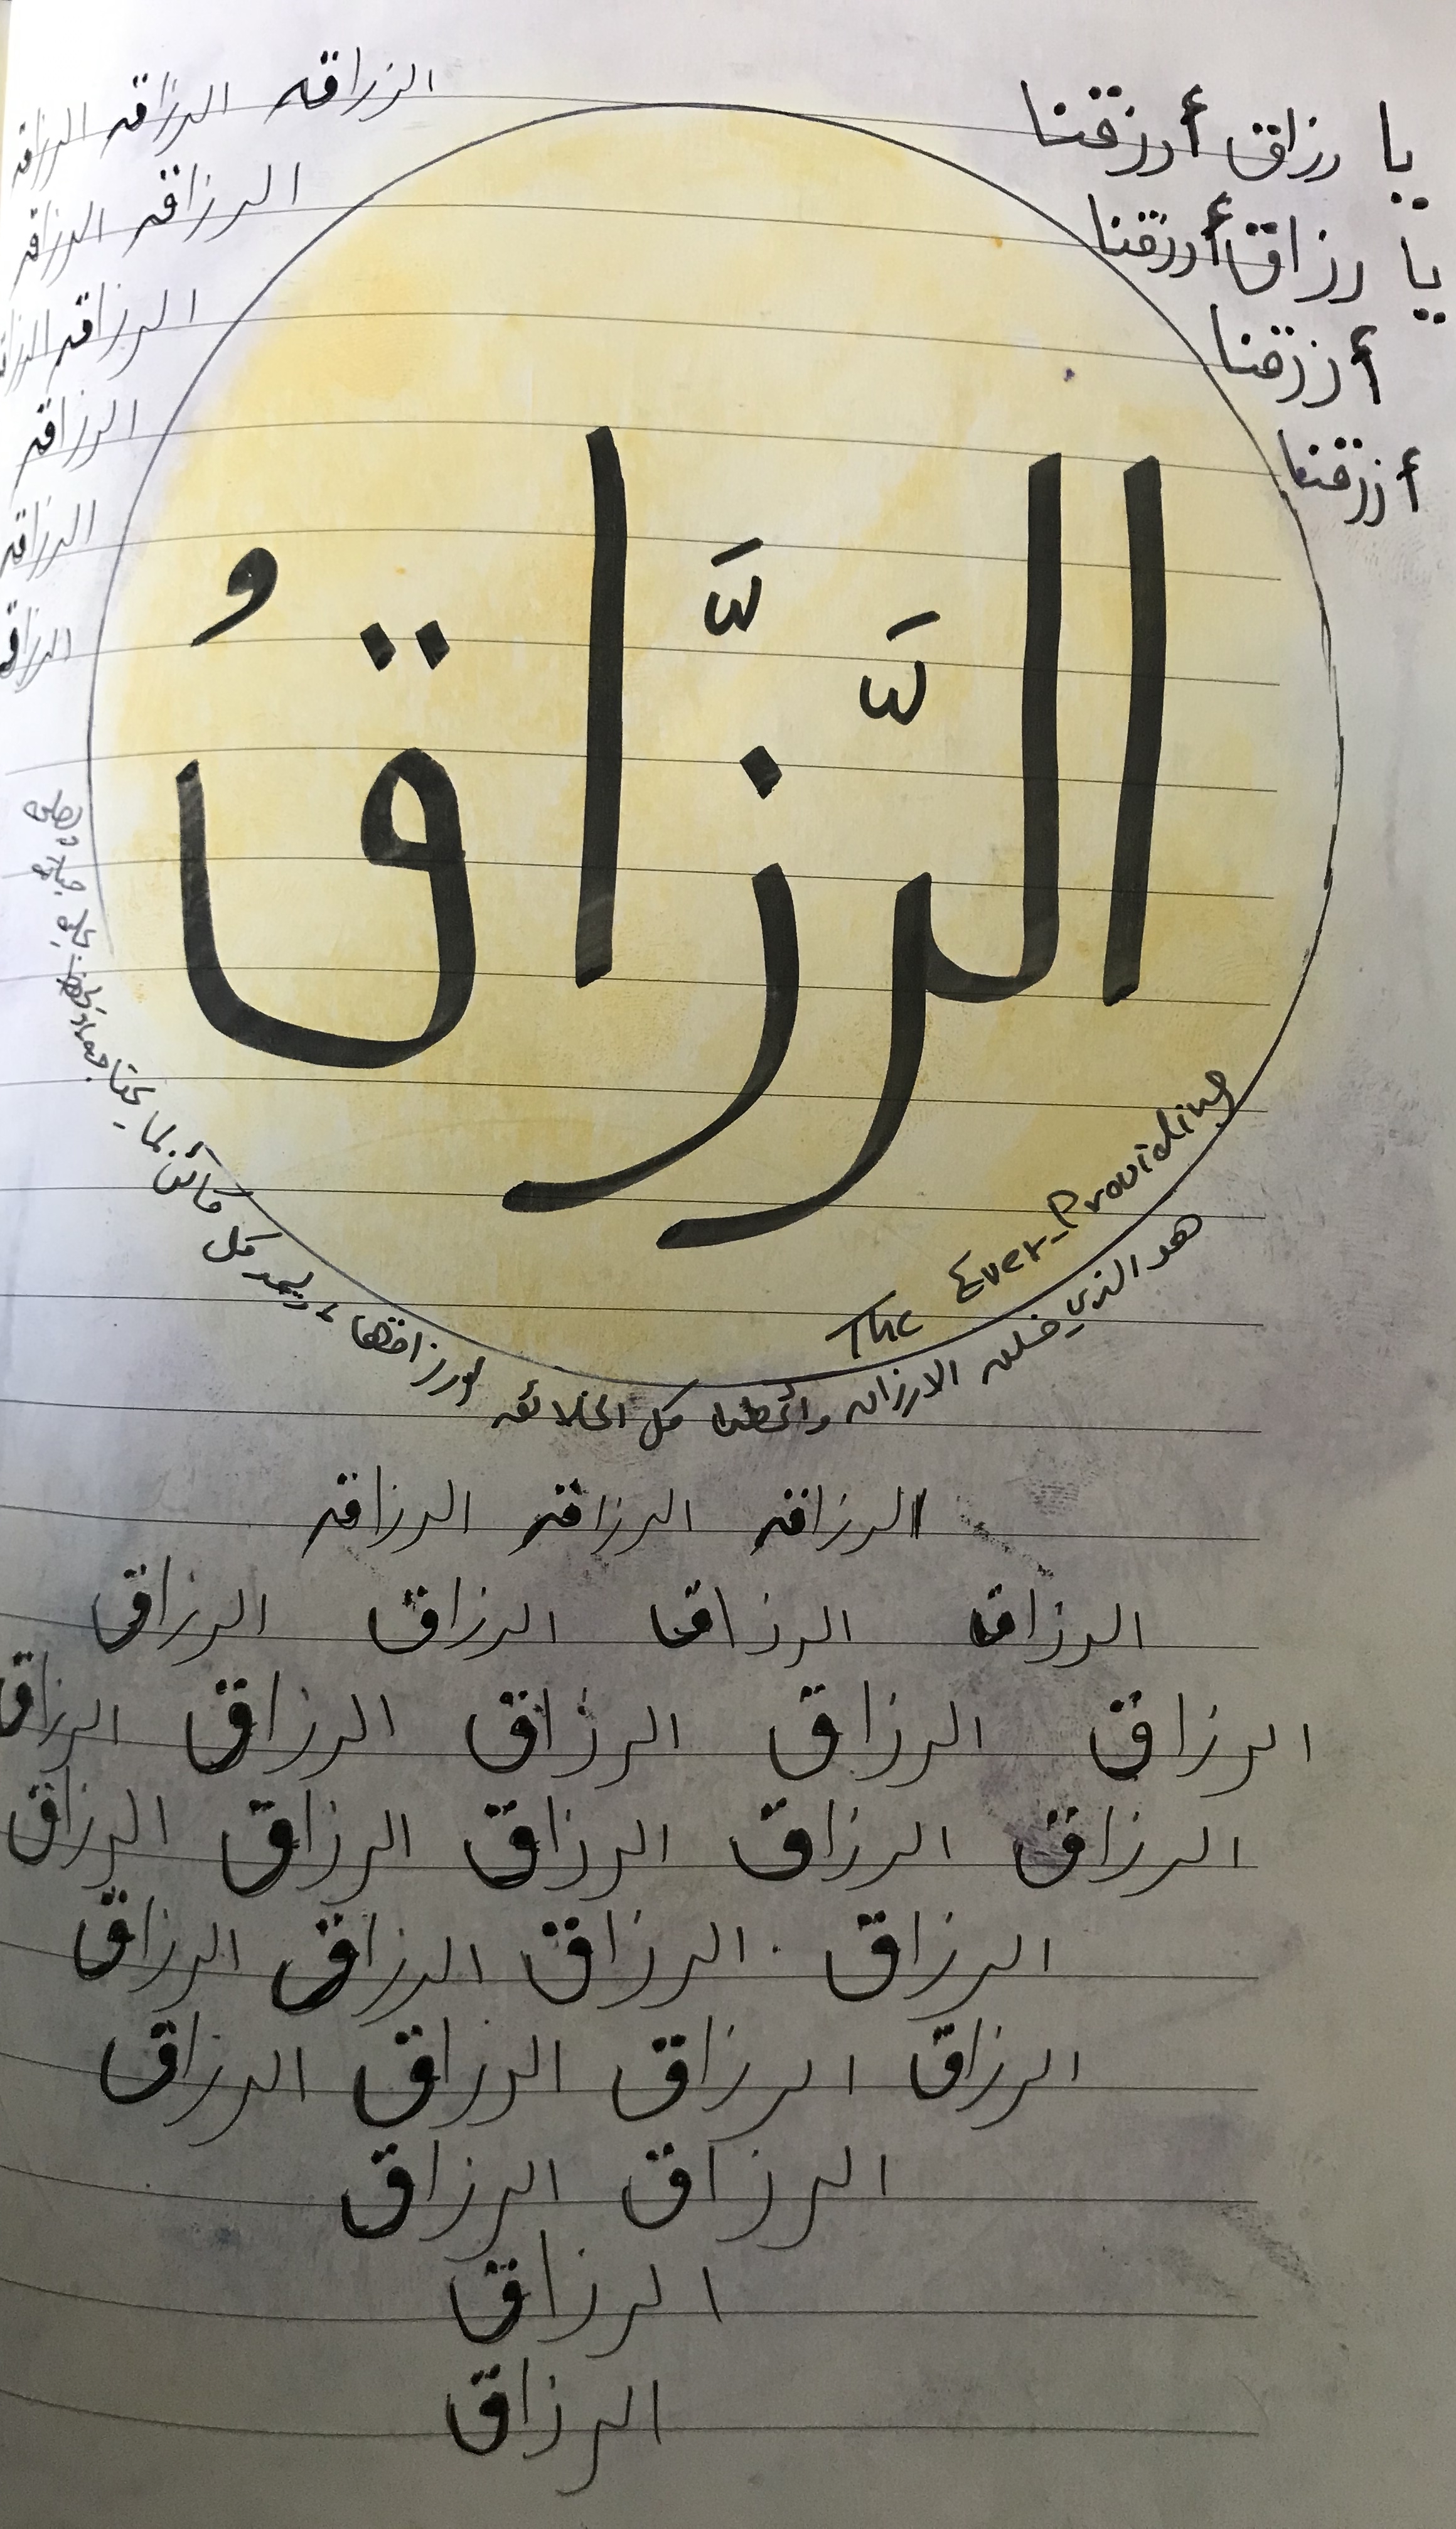 يا رزاق أرزقنا
يا رزاق أرزقنا
أرزقنا
أرزقنا
الرزاق الرزاق الرزاق
الرزاق الرزاق
الرزاق الرزاق
الرزاق
الرزاق
الرزاق
الرَّزَّاقُ
The Ever-Providing
هو الذي خلق الارزاق وأعطى كل الخلائق أرزاقها، ويمد كل كائن لما يحتاجه
الرزاق الرزاق الرزاق
الرزاق الرزاق الرزاق الرزاق
الرزاق الرزاق الرزاق الرزاق الرزاق
الرزاق الرزاق الرزاق الرزاق الرزاق
الرزاق الرزاق الرزاق الرزاق
الرزاق الرزاق الرزاق الرزاق
الرزاق الرزاق
الرزاق
الرزاق